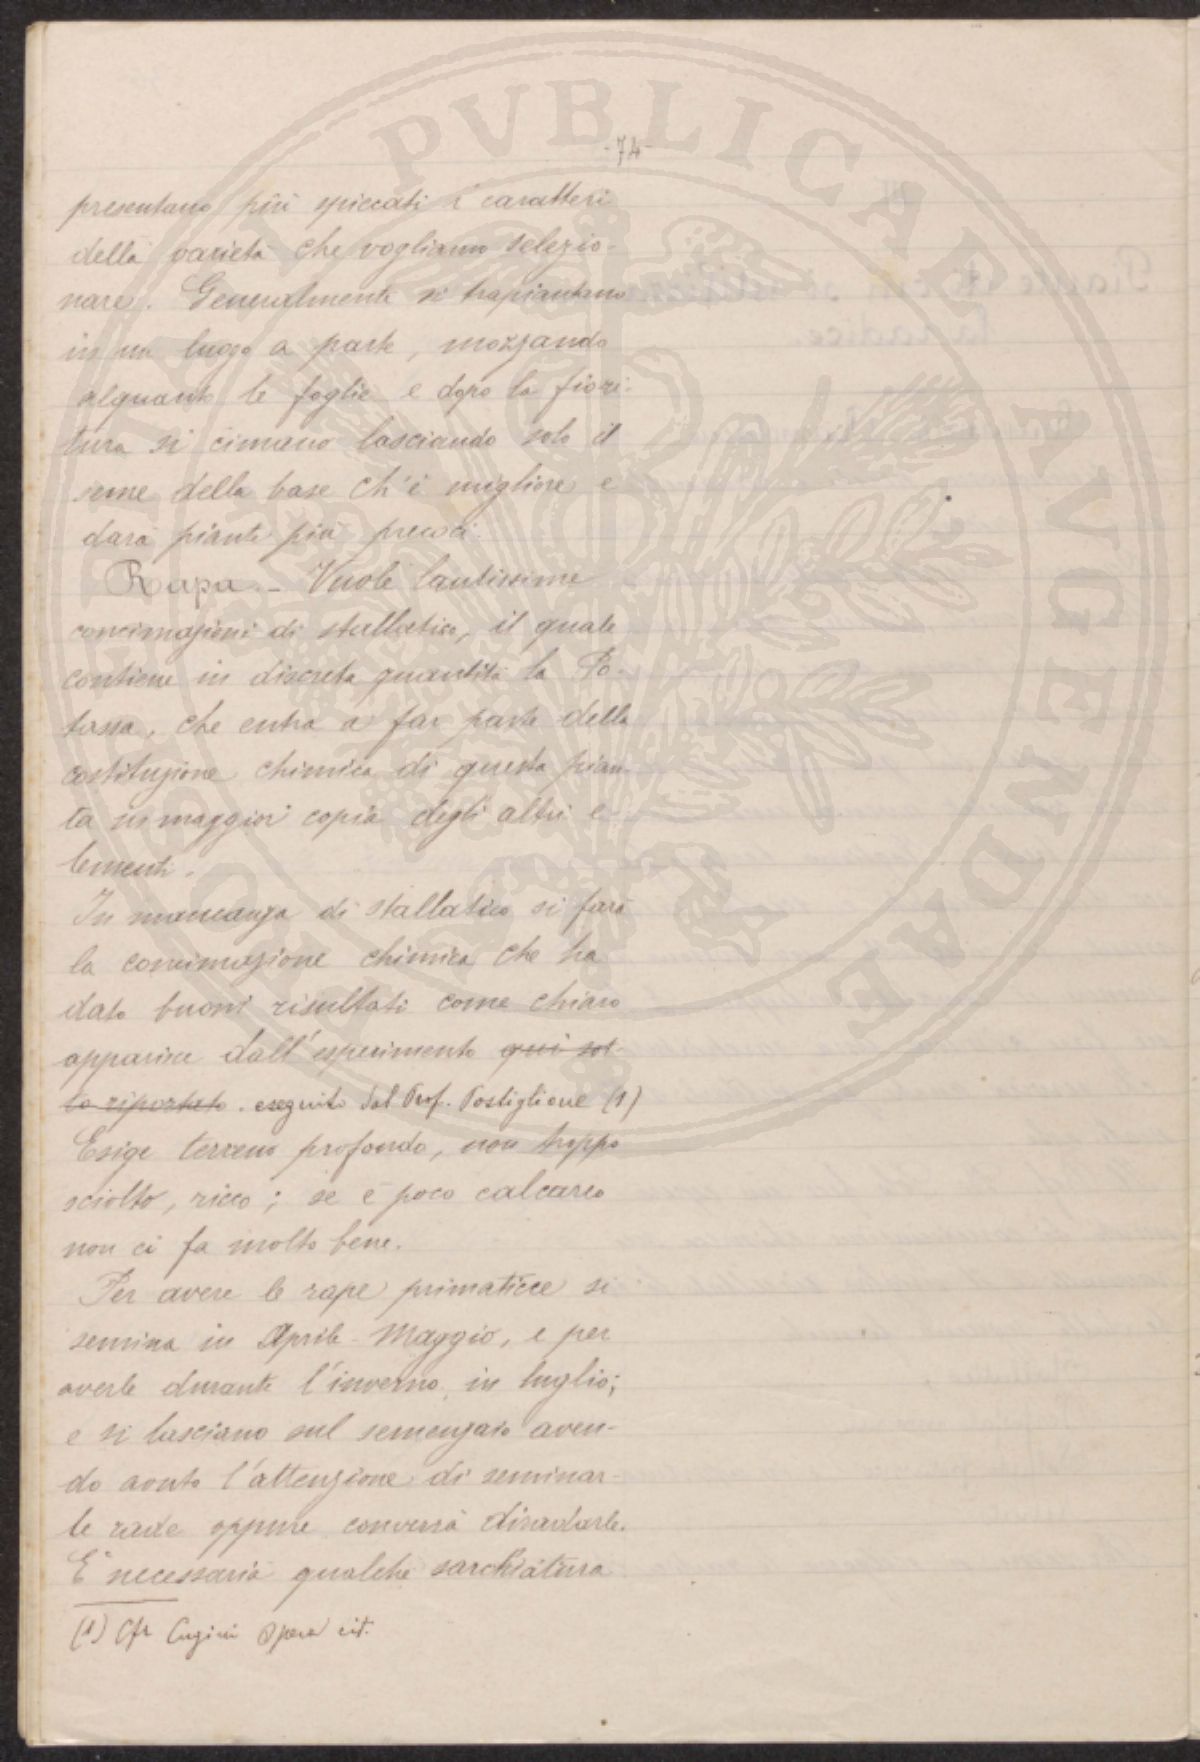 -74-
presentano più spiccati i caratteri
della varietà che vogliamo selezio-
nare. Generalmente si trapiantano
in un luogo a parte, mozzando
alquanto le foglie e dopo la fiori-
tura si cimano lasciando solo il
seme della base ch'è migliore e
darà piante più precoci.
Rapa. - Vuole lautissime
concimazioni di stallatico, il quale
contiene in discreta quantità la Po-
tassa, che entra a far parte della
costituzione chimica di questa pian-
ta in maggior copia degli altri e-
lementi.
In mancanza di stallatico si farà
la concimazione chimica che ha
dato buoni risultati come chiaro
apparisce dall'esperimento qui sot-
to riportato. eseguito dal Prof. Postiglione (1)
Esige terreno profondo, non troppo
sciolto, ricco; se è poco calcareo
non ci fa molto bene.
Per avere le rape primaticce si
semina in Aprile-Maggio, e per
averle durante l'inverno, in luglio;
e si lasciano sul semenzaio aven-
do avuto l'attenzione di seminar-
le rade oppure converrà diradarle.
E' necessaria qualche sarchiatura
(1) Cfr Cugini Opera cit.
PVBLICAE AVGENDAE